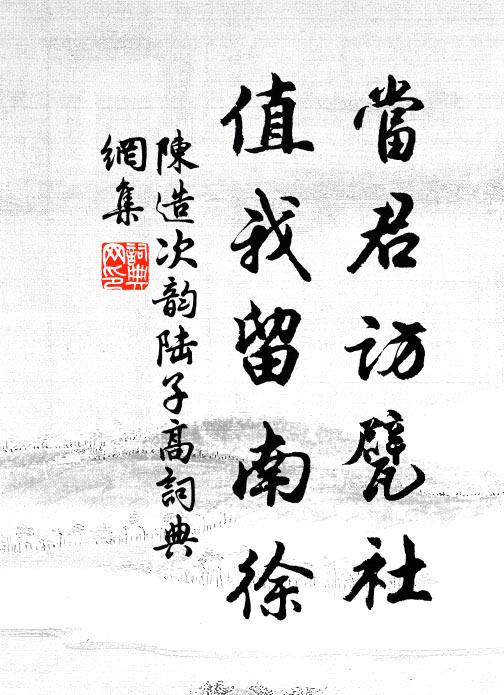 當君訪甓社
值我留南徐
陳造次韵陆子高詞典
網集
詞典网印